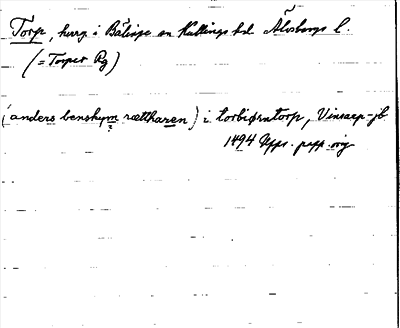 Torp, hmg. i Bälinge sn Kullings hd. Älvsborgs l.
(= Torper Rg)
(anders benskym rættharen) i torbiørntorp, Vinsarp-jb
?
1494 Upps. papp. orig